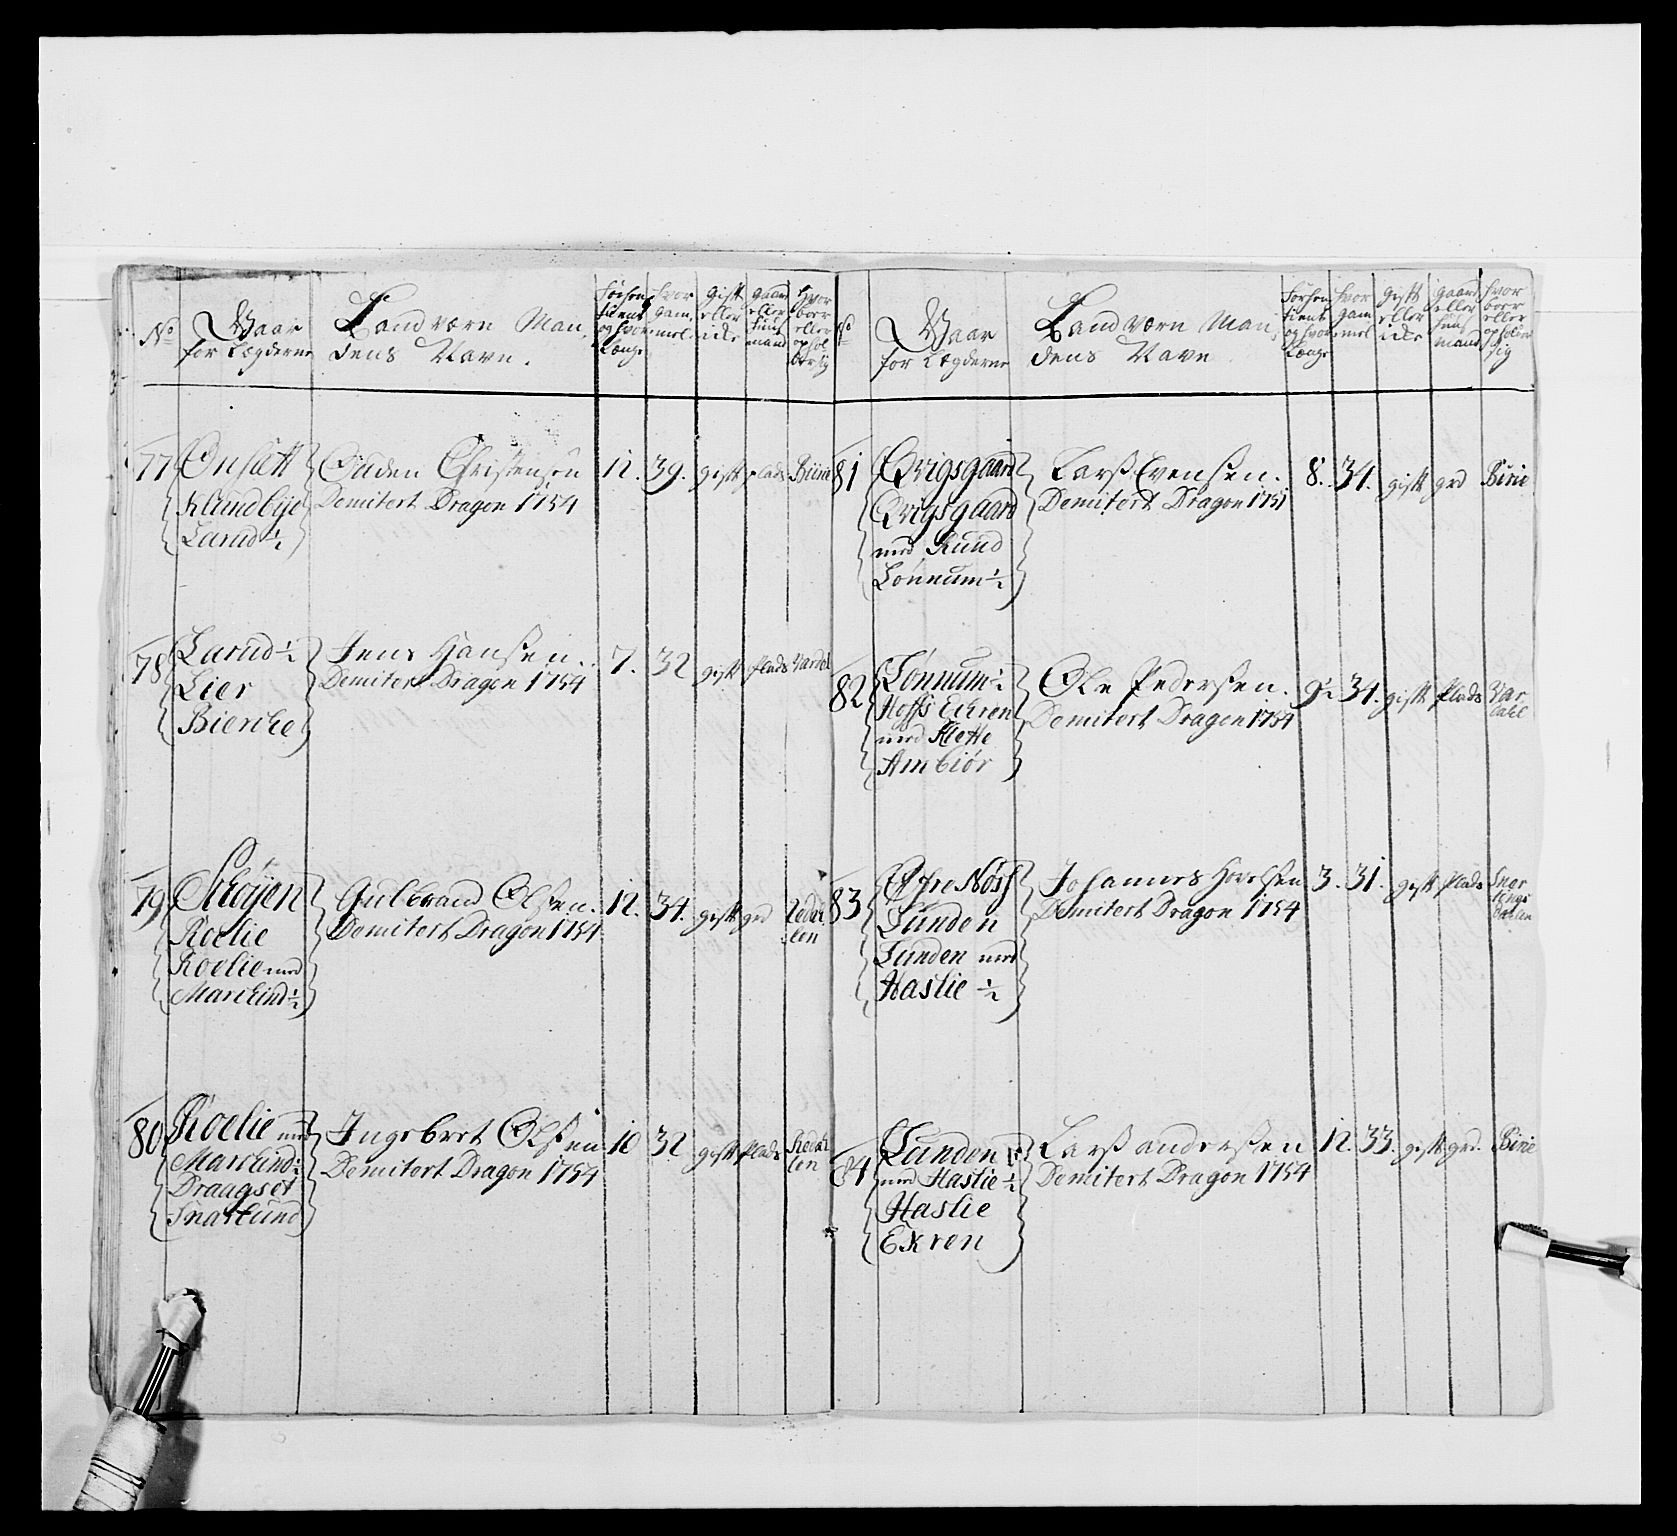 No
Gaar
for Lægderne
Land værn Man
dens Navn.
Før hen
tient
og hvor
Længe
hvor
gam
mel
gift
eller
ikke
gaard
eller
huus
mand
Hvor
boer
eller
ophol
der sig
77
Onsætt
Klundbÿe
Larud ½
Ouden Christensen
Demitert Dragon 1754
12.
39.
gift
plads
Biirie
78
Larud ½
Lier
Biercke
Jens Hansen.
Demitert Dragon 1754
7.
32
gift
Plads
Vardal
79
Skoÿen
Roelie
Roelie med
Marclund ½
Gulbrand Olsen.
Demitert Dragon 1754
12.
34.
gift
grd
Reda
len
80
Roelie med
Marclund ½
Draagset
Snarlund
Ingebret Olsen
Demitert Dragon 1754
10
32
gift
Plads
Reda
len
No
Gaar
for Lægderne
Land værn Man
dens Navn
Før hen
tient
og hvor
Længe
hvor
gam
mel
gift
eller
ikke
gaard
eller
huus
mand
hvor
boer
eller
opholder
sig
81
Qvigsgaard
Qvigsgaard
med Rund
Lønnum ½
Lars Evensen.
Demitert Dragon 1751
8.
34.
gift
grd
Birie
82
Lønnum ½
Hoffs Eckren
med Klette
Ambiør
Ole Pedersen.
Demitert Dragon 1754
9½
34.
gift
Plads
Var
dahl
83
Øfre Nøss
Sunden
Sunden med
Haslie ½
Johannes Hovelsen
Demitert Dragon 1754
3.
31.
gift
Plads
Sner
tings
dalen
84
Sunden
med Haslie ½
Haslie
Ekren
Lars andersen
Demitert Dragon 1754
12.
33.
gift
grd.
Birie